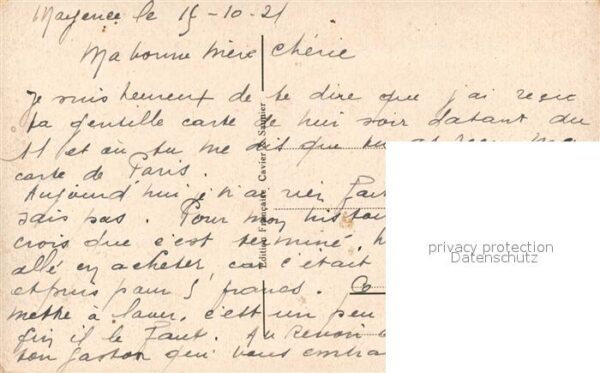 Mayence le 15-10-21
Ma bonne mère chérie
Je suis heureux de te dire que j'ai reçu
ta gentille carte de hui soir datant du
11 et où tu me dis que tu
carte de Paris.
Aujourd'hui je n'ai rien fait
sais pas. Pour mon histoi
crois que c'est terminé,
allé en acheter, car c'était
et puis pour 5 francs.
mettre à laver, c'est un peu
il le faut. Au revoir
ton Gaston qui vous embra
Edition Française Cavier & Saunier
privacy protection
Datenschutz